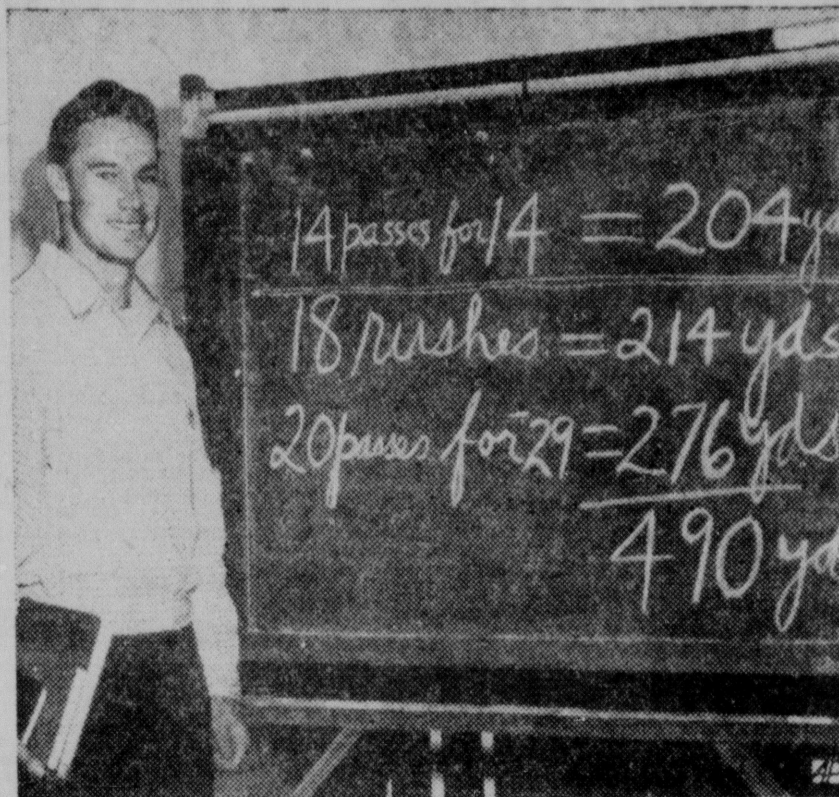 14 passes for 14 = 204 yd
18 rushes = 214 yds
20 passes for 29 = 276 yds
490 yd